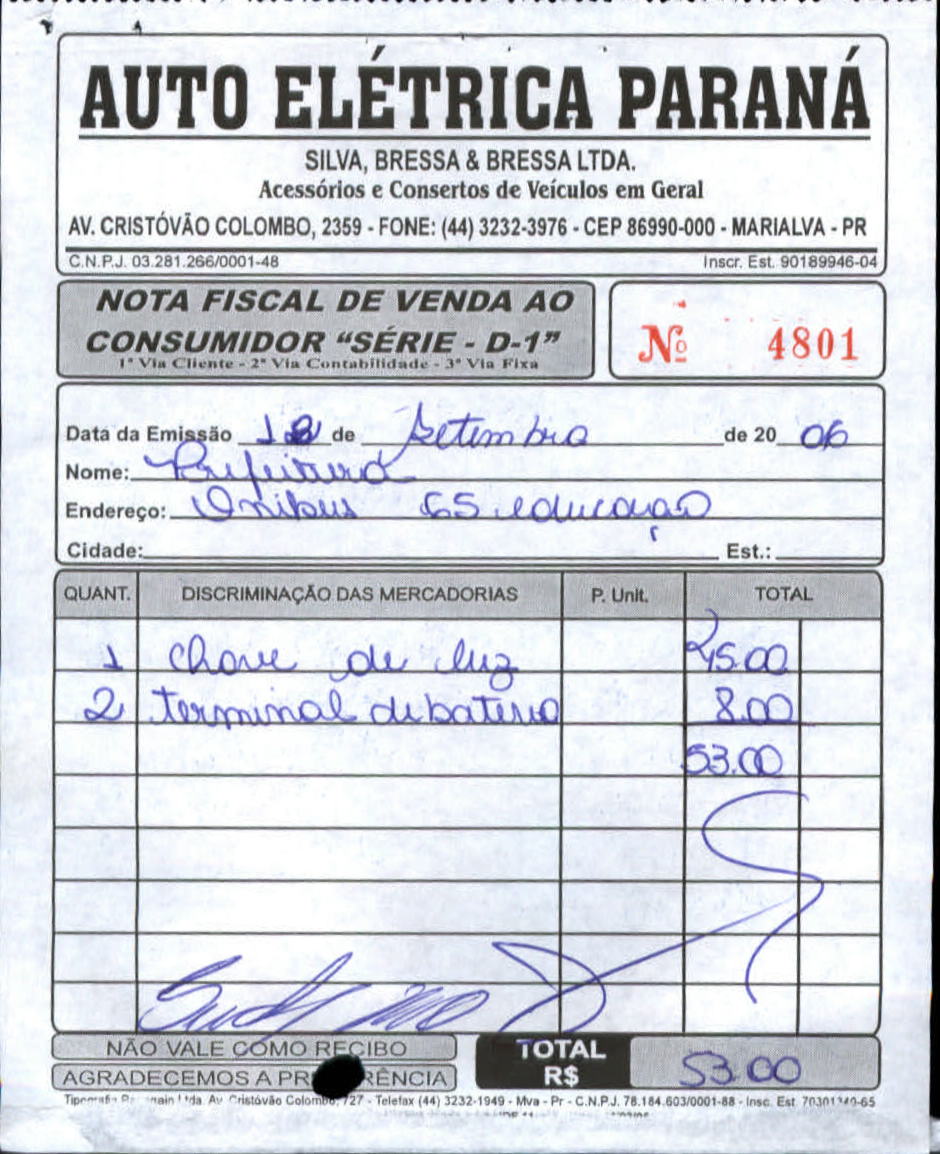 AUTO ELÉTRICA PARANÁ
SILVA, BRESSA & BRESSA LTDA.
Acessórios e Consertos de Veículos em Geral
AV. CRISTÓVÃO COLOMBO, 2359 - FONE: (44) 3232-3976 - CEP 86990-000 - MARIALVA - PR
C.N.P.J. 03.281.266/0001-48 Inscr. Est. 90189946-04
NOTA FISCAL DE VENDA AO
CONSUMIDOR “SÉRIE - D-1”
1ª Via Cliente - 2ª Via Contabilidade - 3ª Via Fixa
Nº 4801
Data da Emissão 18 de Setembro de 20 06
Nome: Prefeitura
Endereço: Onibus 65 educação
Cidade: Est.:
QUANT. DISCRIMINAÇÃO DAS MERCADORIAS P. Unit. TOTAL
1 Chave de luz 45.00
2 terminal de bateria 8.00
53.00
NÃO VALE COMO RECIBO
AGRADECEMOS A
TOTAL
R$ 53.00
Tipografia Ltda. Av. Cristóvão 727 - Telefax (44) 3232-1949 - Mva - Pr - C.N.P.J. 78.184.603/0001-88 - Insc. Est.